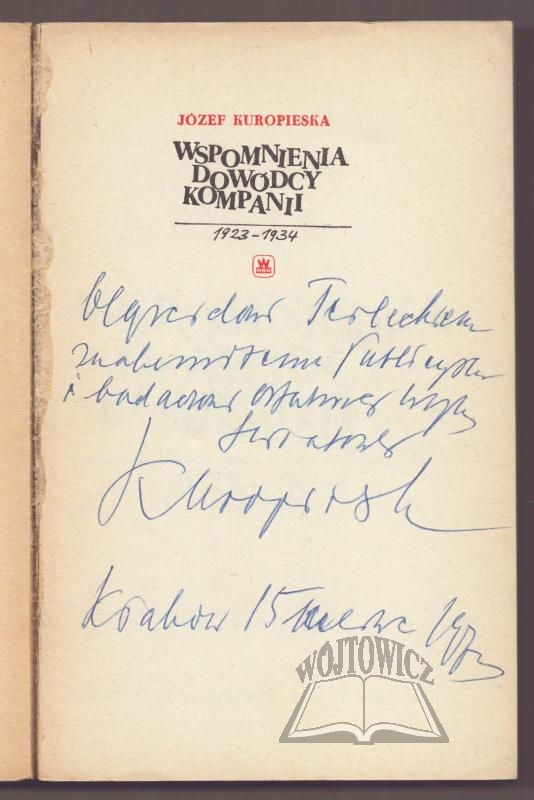 JÓZEF KUROPIESKA
WSPOMNIENIA
DOWÓDCY
KOMPANII
1923-1934
W
MON
Olgierdowi Terleckiemu
znakomitemu Publicyście
i badaczowi Ostatniej Wojny
Światowej
J Kuropieska
Kraków 15
WÓJTOWICZ